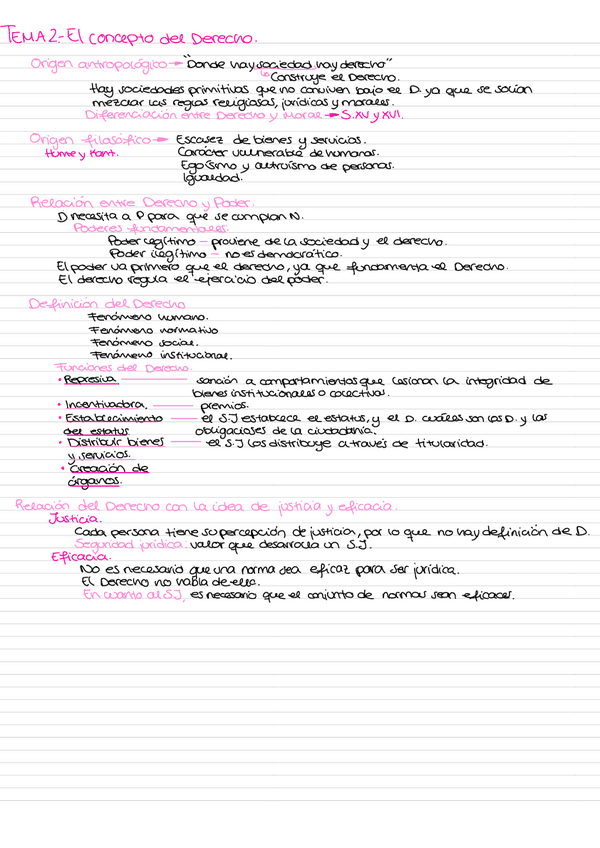 TEMA 2.- El concepto del Derecho.
Origen antropológico → "Donde hay sociedad, hay derecho"
↳ Construye el Derecho.
Hay sociedades primitivas que no conviven bajo el D. ya que se solían
mezclar las reglas religiosas, jurídicas y morales.
Diferenciación entre Derecho y Moral → S.XV y XVI.
Origen filosófico → Escasez de bienes y servicios.
Hume y Kant. Carácter vulnerable de humanos.
Egoísmo y altruismo de personas.
Igualdad.
Relación entre Derecho y Poder.
D necesita a P para que se cumplan N.
Poderes fundamentales:
Poder legítimo - proviene de la sociedad y el derecho.
Poder ilegítimo - no es democrático.
El poder va primero que el derecho, ya que fundamenta el Derecho.
El derecho regula el ejercicio del poder.
Definición del Derecho
Fenómeno humano.
Fenómeno normativo
Fenómeno social.
Fenómeno institucional.
Funciones del Derecho.
• Represiva — sanción a comportamientos que lesionan la integridad de
bienes institucionales o colectivos.
• Incentivadora. — premios.
• Establecimiento — el S.J establece el estatus, y el D. cuáles son los D. y las
del estatus obligaciones de la ciudadanía.
• Distribuir bienes — el S.J los distribuye a través de titularidad.
y servicios.
• Creación de
órganos.
Relación del Derecho con la idea de justicia y eficacia.
Justicia.
Cada persona tiene su percepción de justicia, por lo que no hay definición de D.
Seguridad jurídica. valor que desarrolla un S.J.
Eficacia.
No es necesario que una norma sea eficaz para ser jurídica.
El Derecho no habla de ella.
En cuanto al SJ, es necesario que el conjunto de normas sean eficaces.